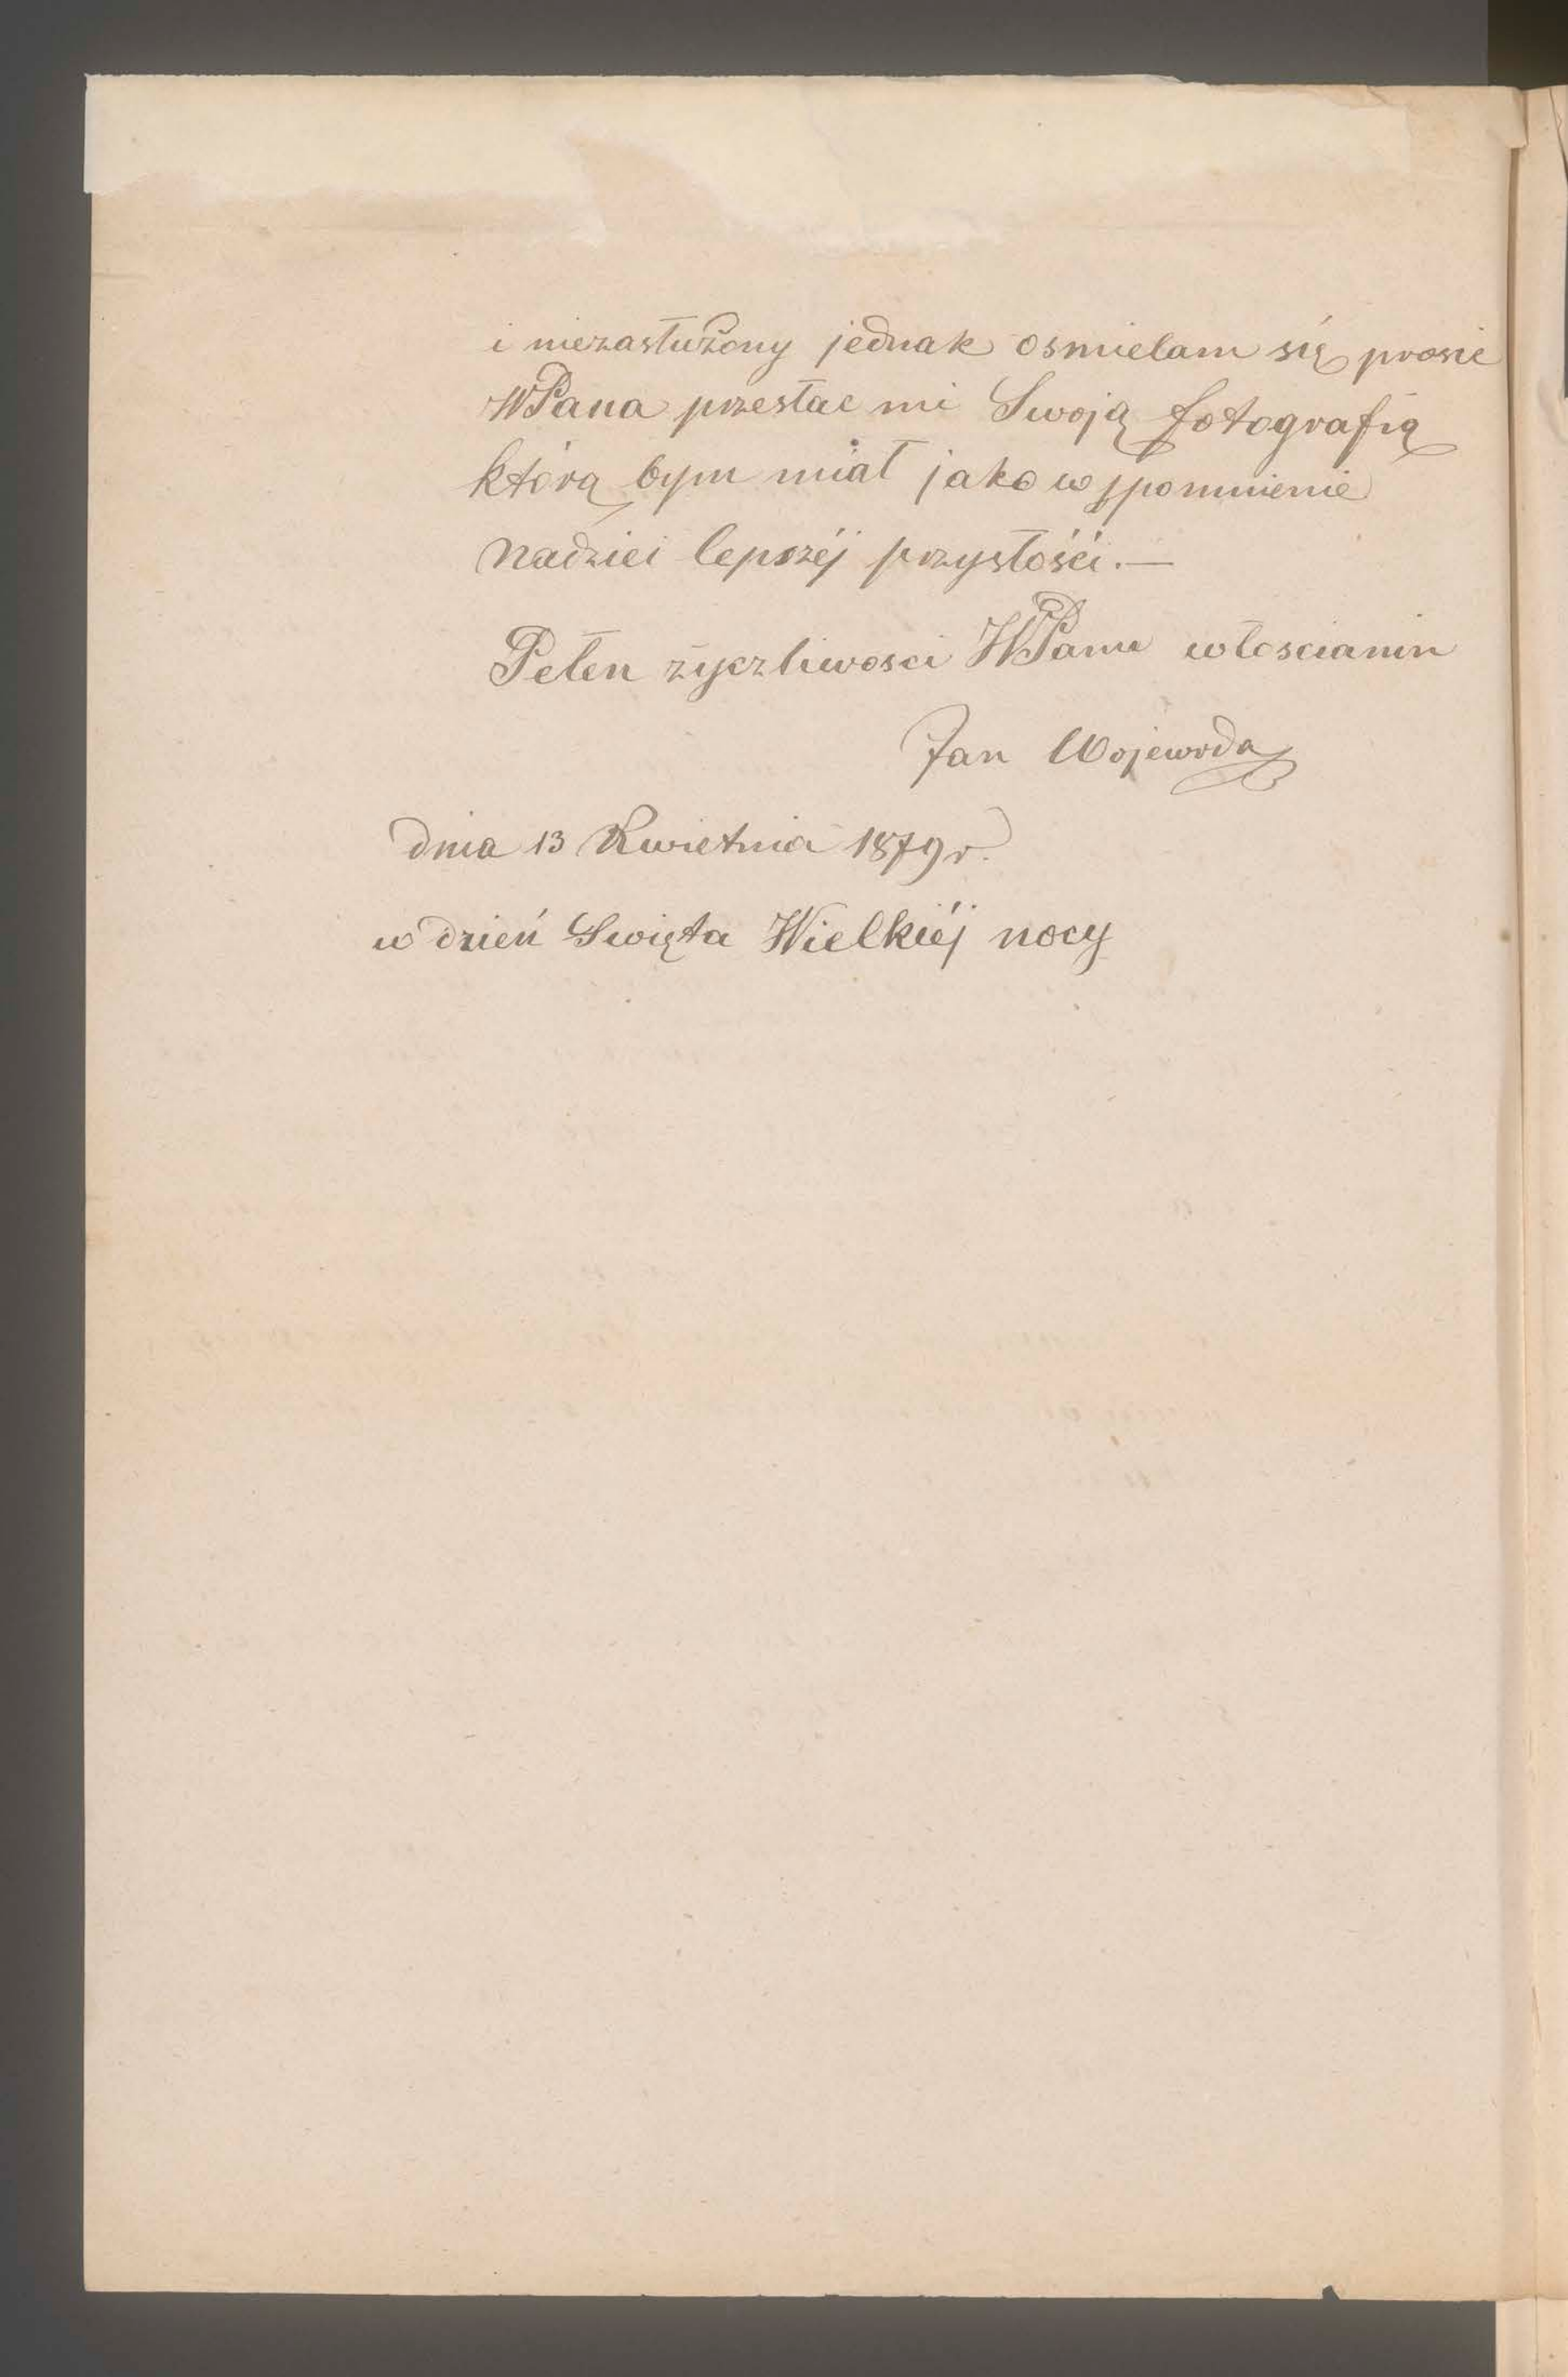 i niezasłużony jednak osmielam się prosic
WPana przesłac mi Swoją fotografią
którą bym miał jako wspomnienie
nadziei lepszéj przysłości.—
Pełen życzliwosci WPanu włoscianin
Jan Wojewoda
dnia 13 Kwietnia 1879 r.
w dzień Swięta Wielkiéj nocy